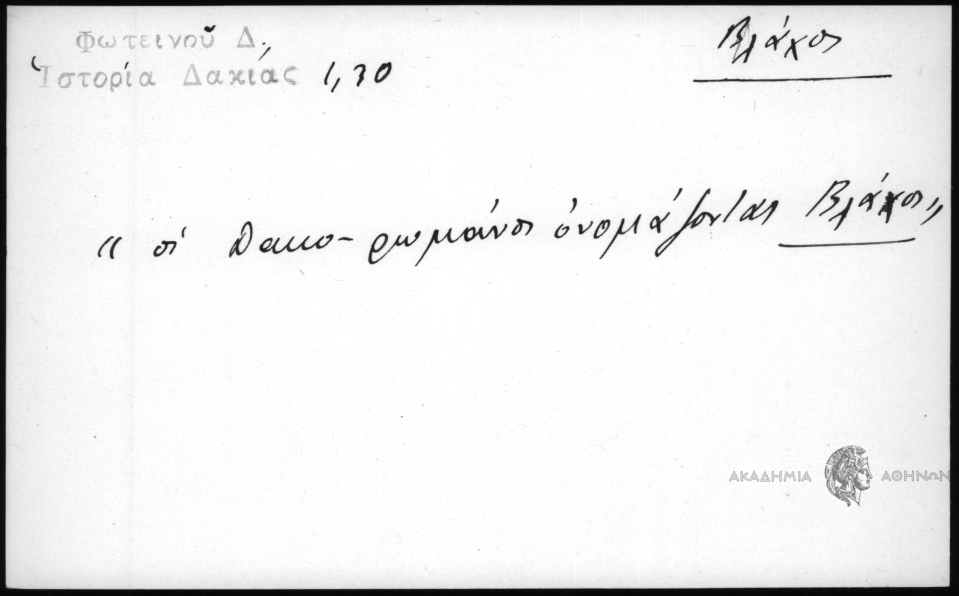 Φωτεινοῦ Δ.
Ἱστορία Δακίας 1,30
Βλάχοι
“ οἱ Δακο-ρωμάνοι ὀνομάζονται Βλάχοι„
ΑΚΑΔΗΜΙΑ ΑΘΗΝΩΝ